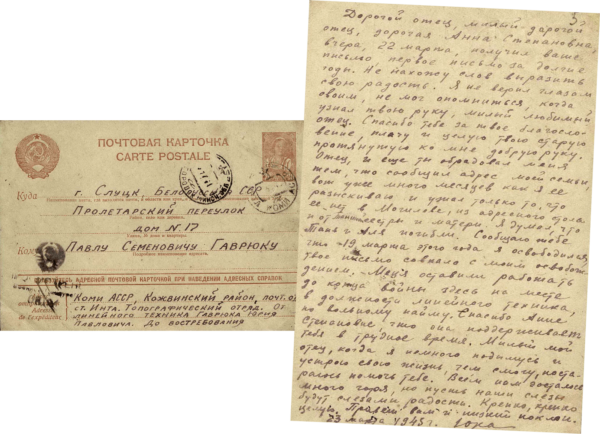 ПОЧТОВАЯ КАРТОЧКА
CARTE POSTALE
Куда
г. Слуцк, Белорусс ССР
Пролетарский переулок
дом N. 17
Кому
Павлу Семеновичу Гаврюку
Коми АССР, Кожвинский район, почт.
ст. Инта. Топографический отряд. От
линейного техника Гаврюка Юрия
Павловича. До востребования
Дорогой отец, милый дорогой
отец, дорогая Анна Степановна,
вчера, 22 марта, получил ваше
письмо, первое письмо за долгие
годы. Не нахожу слов выразить
свою радость. Я не верил глазам
своим, не мог опомниться, когда
узнал твою руку, милый любимый
отец. Спасибо тебе за твое благосло-
вение, плачу и целую твою старую
протянутую ко мне добрую руку.
Отец, и еще ты обрадовал меня
тем, что сообщил адрес моей семьи,
вот уже много месяцев как я ее
разыскиваю и узнал только то, что
ее нет в Могилеве, из адресного стола
и от сестры и матери. Я думал, что
Таня и Аля погибли. Сообщаю тебе
что 19 марта этого года я освободился,
твое письмо совпало с моим освобож-
дением. Меня оставили работать
до конца войны здесь на месте
в должности линейного техника,
по вольному найму. Спасибо Анне
Степановне что она поддерживает
тебя в трудное время. Милый мой
отец, когда я немного подымусь и
устрою свою жизнь, чем смогу, поста-
раюсь помочь тебе. Всем нам досталось
много горя, но пусть наши слезы
будут слезами радости. Крепко, крепко
целую. низкий поклон.
23 марта 1945 г. Юра